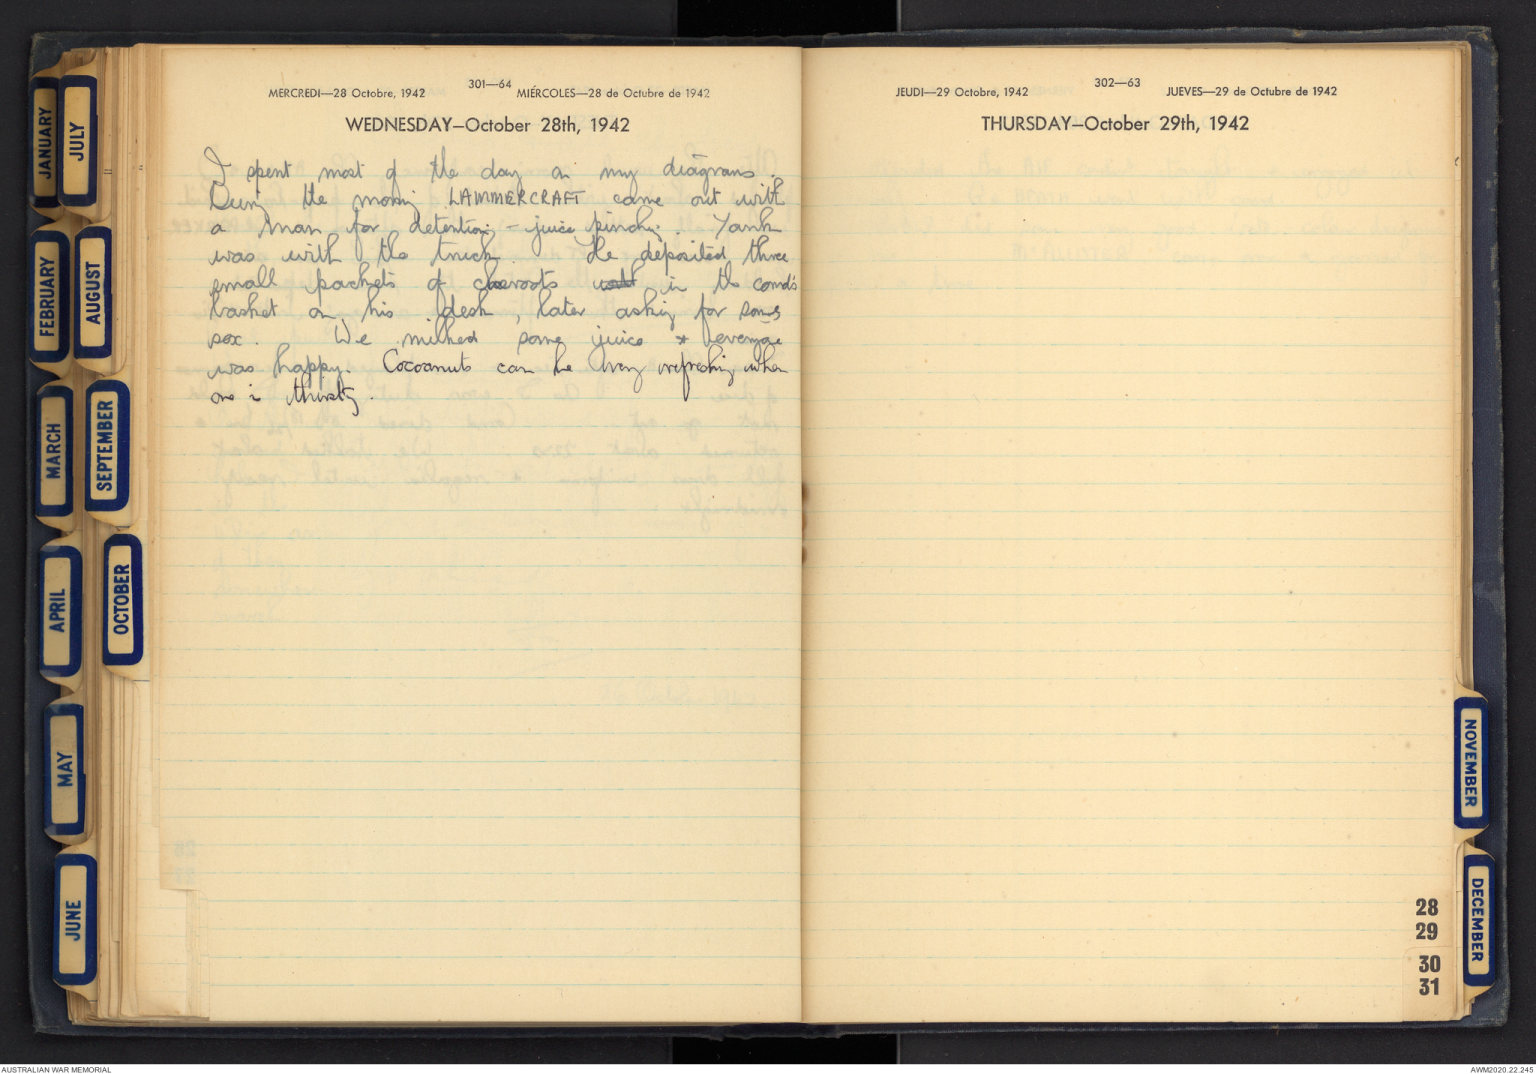 JANUARY
JULY
FEBRUARY
AUGUST
MARCH
SEPTEMBER
APRIL
OCTOBER
MAY
JUNE
301—64
MERCREDI—28 Octobre, 1942 MIÉRCOLES—28 de Octubre de 1942
WEDNESDAY—October 28th, 1942
I spent most of the day on my diagrams.
During the morning LAMMERCRAFT came out with
a man for detention – juice pinching. Yank
was with the truck. He deposited three
small packets of cheroots in the comd's
basket on his desk, later asking for some
sox. We milked some juice & revenge
was happy. Cocoanuts can be very refreshing when
one is thirsty.
302—63
JEUDI—29 Octobre, 1942 JUEVES—29 de Octubre de 1942
THURSDAY—October 29th, 1942
NOVEMBER
DECEMBER
28
29
30
31
AUSTRALIAN WAR MEMORIAL
AWM2020.22.245